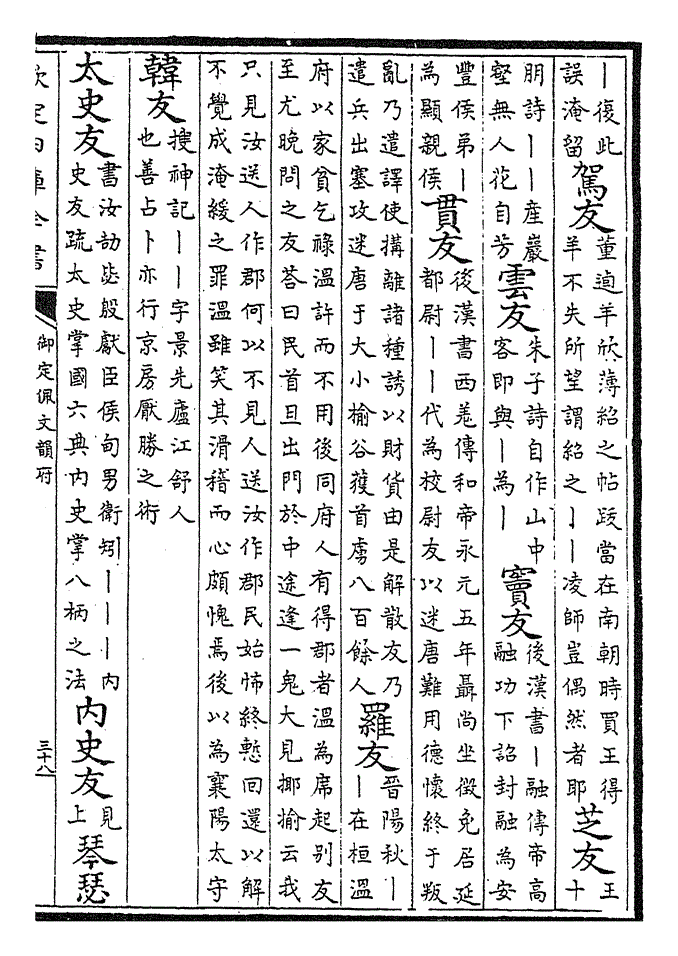 丨復此
誤淹留
駕友
董逌羊欣薄紹之帖跋當在南朝時買王得
羊不失所望謂紹之丨丨凌師豈偶然者耶
芝友
王
十
朋詩丨丨産巖
壑無人花自芳
雲友
朱子詩自作山中
客即與丨為丨
竇友
後漢書丨融傳帝高
融功下詔封融為安
豐侯弟丨
為顯親侯
貫友
後漢書西羌傳和帝永元五年聶尚坐徵免居延
都尉丨丨代為校尉友以迷唐難用德懷終于叛
亂乃遣譯使搆離諸種誘以財貨由是解散友乃
遣兵出塞攻迷唐于大小榆谷獲首虜八百餘人
羅友
晉陽秋丨
丨在桓溫
府以家貧乞祿溫許而不用後同府人有得郡者溫為席起別友
至尤晚問之友荅曰民首旦出門於中途逢一鬼大見揶揄云我
只見汝送人作郡何以不見人送汝作郡民始怖終慙回還以解
不覺成淹緩之罪溫雖笑其滑稽而心頗愧焉後以為襄陽太守
韓友
搜神記丨丨字景先廬江舒人
也善占卜亦行京房厭勝之術
太史友
書汝劼毖殷獻臣侯甸男衛矧丨丨丨内
史友疏太史掌國六典内史掌八柄之法
内史友
見
上
琴瑟
欽定四庫全書
御定佩文韻府
三十八